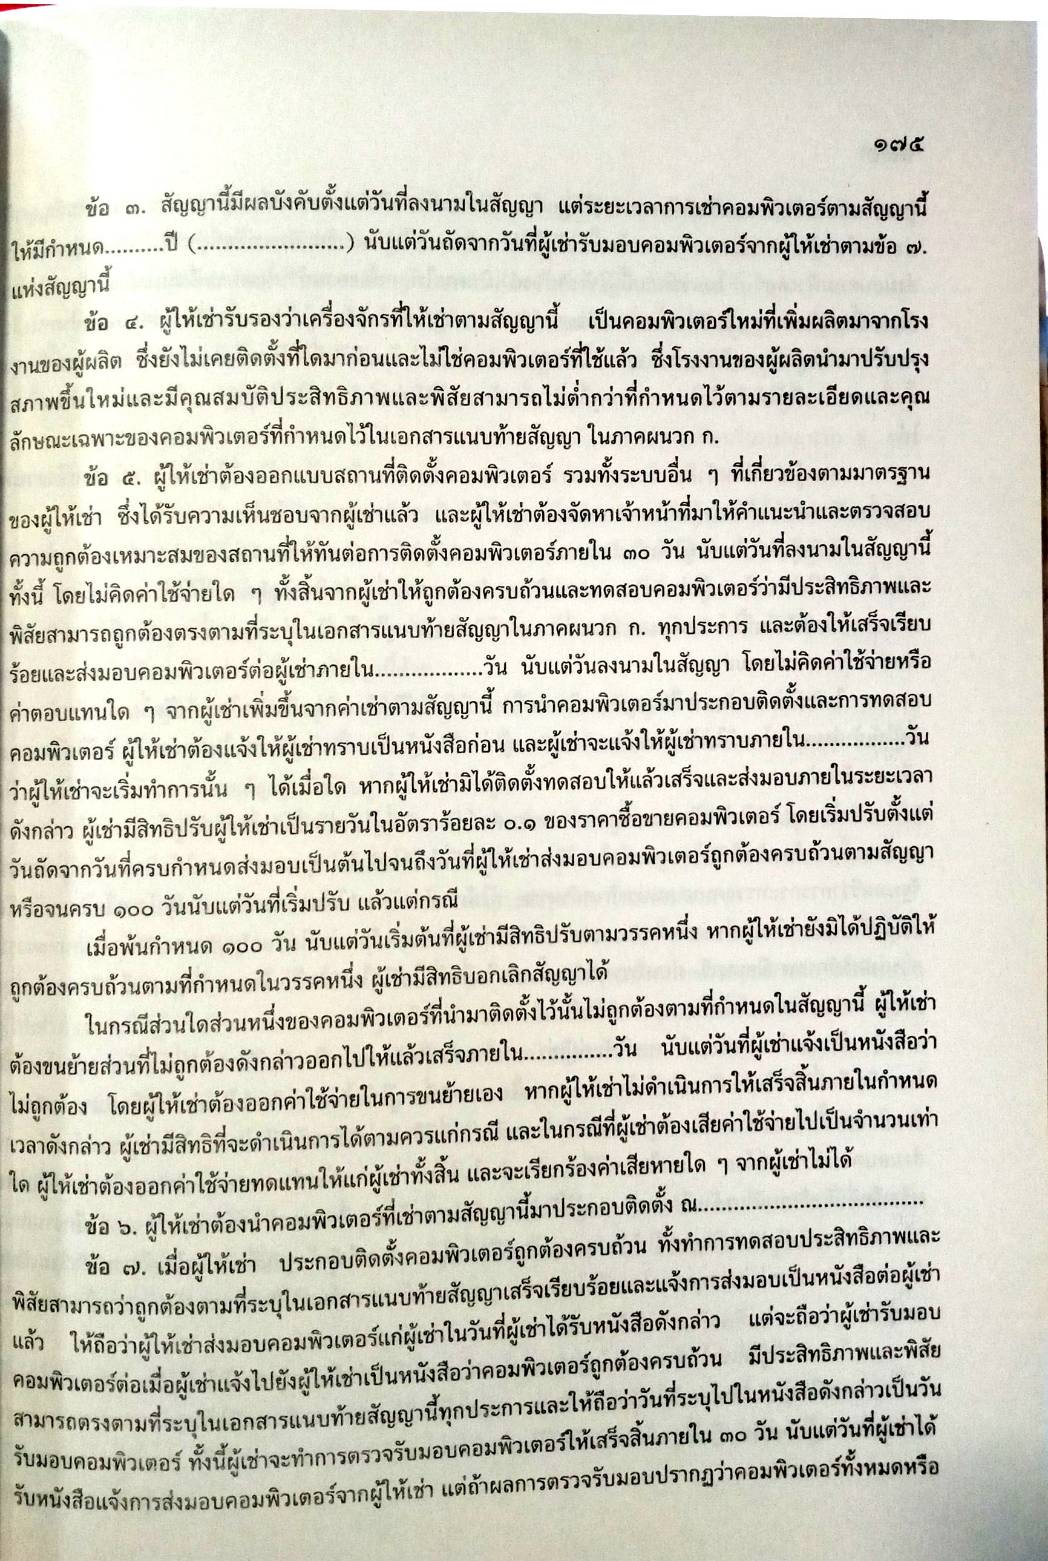 ๑๗๕
ข้อ ๓. สัญญานี้มีผลบังคับตั้งแต่วันที่ลงนามในสัญญา แต่ระยะเวลาการเช่าคอมพิวเตอร์ตามสัญญานี้
ให้มีกำหนด..........ปี (.........................) นับแต่วันถัดจากวันที่ผู้เช่ารับมอบคอมพิวเตอร์จากผู้ให้เช่าตามข้อ ๗.
แห่งสัญญานี้
ข้อ ๔. ผู้ให้เช่ารับรองว่าเครื่องจักรที่ให้เช่าตามสัญญานี้ เป็นคอมพิวเตอร์ใหม่ที่เพิ่มผลิตมาจากโรง
งานของผู้ผลิต ซึ่งยังไม่เคยติดตั้งที่ใดมาก่อนและไม่ใช่คอมพิวเตอร์ที่ใช้แล้ว ซึ่งโรงงานของผู้ผลิตนำมาปรับปรุง
สภาพขึ้นใหม่และมีคุณสมบัติประสิทธิภาพและพิสัยสามารถไม่ต่ำกว่าที่กำหนดไว้ตามรายละเอียดและคุณ
ลักษณะเฉพาะของคอมพิวเตอร์ที่กำหนดไว้ในเอกสารแนบท้ายสัญญา ในภาคผนวก ก.
ข้อ ๕. ผู้ให้เช่าต้องออกแบบสถานที่ติดตั้งคอมพิวเตอร์ รวมทั้งระบบอื่น ๆ ที่เกี่ยวข้องตามมาตรฐาน
ของผู้ให้เช่า ซึ่งได้รับความเห็นชอบจากผู้เช่าแล้ว และผู้ให้เช่าต้องจัดหาเจ้าหน้าที่มาให้คำแนะนำและตรวจสอบ
ความถูกต้องเหมาะสมของสถานที่ให้ทันต่อการติดตั้งคอมพิวเตอร์ภายใน ๓๐ วัน นับแต่วันที่ลงนามในสัญญานี้
ทั้งนี้ โดยไม่คิดค่าใช้จ่ายใด ๆ ทั้งสิ้นจากผู้เช่าให้ถูกต้องครบถ้วนและทดสอบคอมพิวเตอร์ว่ามีประสิทธิภาพและ
พิสัยสามารถถูกต้องตรงตามที่ระบุในเอกสารแนบท้ายสัญญาในภาคผนวก ก. ทุกประการ และต้องให้เสร็จเรียบ
ร้อยและส่งมอบคอมพิวเตอร์ต่อผู้เช่าภายใน..................วัน นับแต่วันลงนามในสัญญา โดยไม่คิดค่าใช้จ่ายหรือ
ค่าตอบแทนใด ๆ จากผู้เช่าเพิ่มขึ้นจากค่าเช่าตามสัญญานี้ การนำคอมพิวเตอร์มาประกอบติดตั้งและการทดสอบ
คอมพิวเตอร์ ผู้ให้เช่าต้องแจ้งให้ผู้เช่าทราบเป็นหนังสือก่อน และผู้เช่าจะแจ้งให้ผู้เช่าทราบภายใน.................วัน
ว่าผู้ให้เช่าจะเริ่มทำการนั้น ๆ ได้เมื่อใด หากผู้ให้เช่ามิได้ติดตั้งทดสอบให้แล้วเสร็จและส่งมอบภายในระยะเวลา
ดังกล่าว ผู้เช่ามีสิทธิปรับผู้ให้เช่าเป็นรายวันในอัตราร้อยละ ๐.๑ ของราคาซื้อขายคอมพิวเตอร์ โดยเริ่มปรับตั้งแต่
วันถัดจากวันที่ครบกำหนดส่งมอบเป็นต้นไปจนถึงวันที่ผู้ให้เช่าส่งมอบคอมพิวเตอร์ถูกต้องครบถ้วนตามสัญญา
หรือจนครบ ๑๐๐ วันนับแต่วันที่เริ่มปรับ แล้วแต่กรณี
เมื่อพ้นกำหนด ๑๐๐ วัน นับแต่วันเริ่มต้นที่ผู้เช่ามีสิทธิปรับตามวรรคหนึ่ง หากผู้ให้เช่ายังมิได้ปฏิบัติให้
ถูกต้องครบถ้วนตามที่กำหนดในวรรคหนึ่ง ผู้เช่ามีสิทธิบอกเลิกสัญญาได้
ในกรณีส่วนใดส่วนหนึ่งของคอมพิวเตอร์ที่นำมาติดตั้งไว้นั้นไม่ถูกต้องตามที่กำหนดในสัญญานี้ ผู้ให้เช่า
ต้องขนย้ายส่วนที่ไม่ถูกต้องดังกล่าวออกไปให้แล้วเสร็จภายใน...............วัน นับแต่วันที่ผู้เช่าแจ้งเป็นหนังสือว่า
ไม่ถูกต้อง โดยผู้ให้เช่าต้องออกค่าใช้จ่ายในการขนย้ายเอง หากผู้ให้เช่าไม่ดำเนินการให้เสร็จสิ้นภายในกำหนด
เวลาดังกล่าว ผู้เช่ามีสิทธิที่จะดำเนินการได้ตามควรแก่กรณี และในกรณีที่ผู้เช่าต้องเสียค่าใช้จ่ายไปเป็นจำนวนเท่า
ใด ผู้ให้เช่าต้องออกค่าใช้จ่ายทดแทนให้แก่ผู้เช่าทั้งสิ้น และจะเรียกร้องค่าเสียหายใด ๆ จากผู้เช่าไม่ได้
ข้อ ๖. ผู้ให้เช่าต้องนำคอมพิวเตอร์ที่เช่าตามสัญญานี้มาประกอบติดตั้ง ณ.......................................
ข้อ ๗. เมื่อผู้ให้เช่า ประกอบติดตั้งคอมพิวเตอร์ถูกต้องครบถ้วน ทั้งทำการทดสอบประสิทธิภาพและ
พิสัยสามารถว่าถูกต้องตามที่ระบุในเอกสารแนบท้ายสัญญาเสร็จเรียบร้อยและแจ้งการส่งมอบเป็นหนังสือต่อผู้เช่า
แล้ว ให้ถือว่าผู้ให้เช่าส่งมอบคอมพิวเตอร์แก่ผู้เช่าในวันที่ผู้เช่าได้รับหนังสือดังกล่าว แต่จะถือว่าผู้เช่ารับมอบ
คอมพิวเตอร์ต่อเมื่อผู้เช่าแจ้งไปยังผู้ให้เช่าเป็นหนังสือว่าคอมพิวเตอร์ถูกต้องครบถ้วน มีประสิทธิภาพและพิสัย
สามารถตรงตามที่ระบุในเอกสารแนบท้ายสัญญานี้ทุกประการและให้ถือว่าวันที่ระบุไปในหนังสือดังกล่าวเป็นวัน
รับมอบคอมพิวเตอร์ ทั้งนี้ผู้เช่าจะทำการตรวจรับมอบคอมพิวเตอร์ให้เสร็จสิ้นภายใน ๓๐ วัน นับแต่วันที่ผู้เช่าได้
รับหนังสือแจ้งการส่งมอบคอมพิวเตอร์จากผู้ให้เช่า แต่ถ้าผลการตรวจรับมอบปรากฏว่าคอมพิวเตอร์ทั้งหมดหรือ